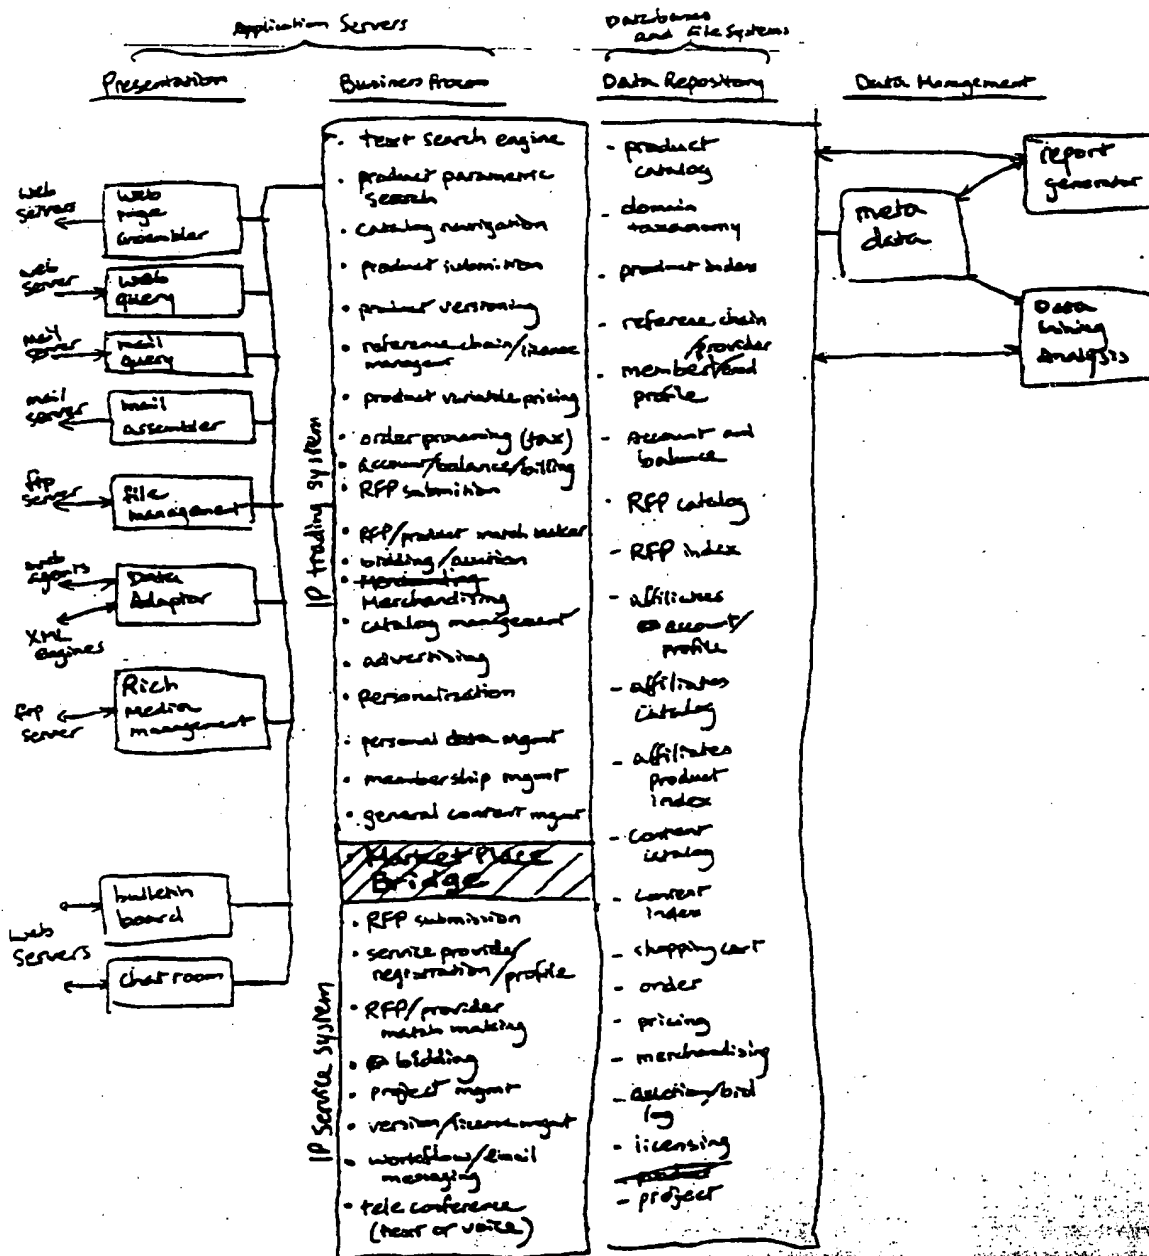 Application Servers
Databases
and File Systems
Presentation
Business Process
Data Repository
Data Management
web
servers
web
page
assembler
web
server
web
query
mail
server
mail
query
mail
server
mail
assembler
ftp
server
file
management
web
agents
XML
engines
Data
Adaptor
ftp
server
Rich
Media
management
Web
Servers
bulletin
board
chat room
IP trading system
• text search engine
• product parametric
search
• catalog navigation
• product submition
• product versioning
• reference chain/license
manager
• product variable pricing
• order processing (tax)
• account/balance/billing
• RFP submition
• RFP/product match maker
• bidding/auction
• Merchandising
• catalog management
• advertising
• personalization
• personal data mgmt
• membership mgmt
• general content mgmt
• Market Place
Bridge
IP service system
• RFP submission
• service provider
registration/profile
• RFP/provider
match making
• bidding
• project mgmt
• version/license mgmt
• workflow/email
messaging
• tele conference
(text or voice)
- product
catalog
- domain
taxonomy
- product index
- reference chain
/provider
- member/
profile
- Account and
balance
- RFP catalog
- RFP index
- affiliates
account/
profile
- affiliates
catalog
- affiliates
product
index
- content
catalog
- content
index
- shopping cart
- order
- pricing
- merchandising
- auction/bid
log
- licensing
- product
- project
meta
data
report
generator
Data
Mining
Analysis